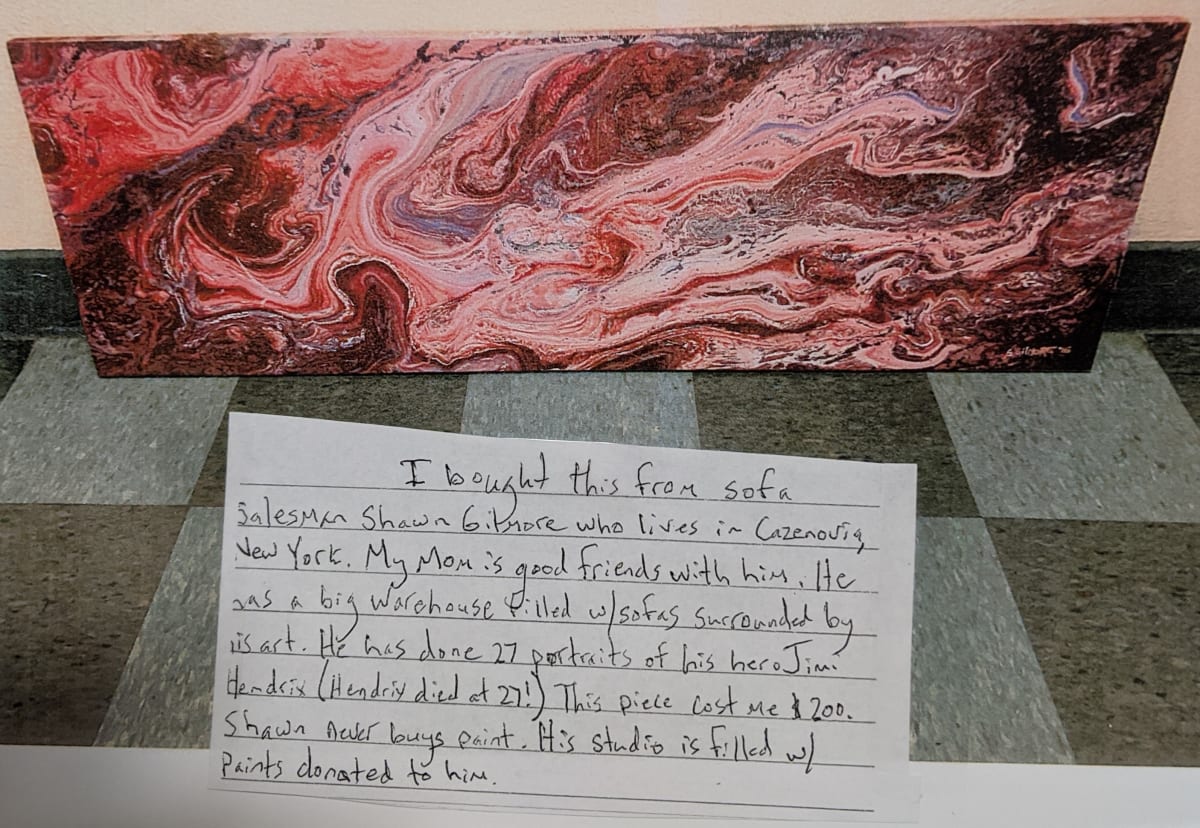 I bought this from sofa
Salesman Shawn Gilmore who lives in Cazenovia,
New York. My Mom is good friends with him. He
has a big warehouse filled w/sofas surrounded by
his art. He has done 27 portraits of his hero Jimi
Hendrix (Hendrix died at 27!) This piece cost me $200.
Shawn never buys paint. His studio is filled w/
paints donated to him.